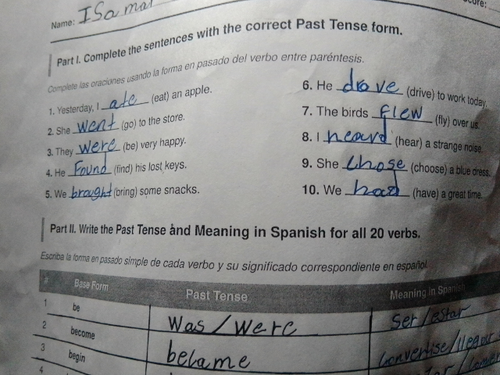 Name: ISamar
Part I. Complete the sentences with the correct Past Tense form.
Complete las oraciones usando la forma en pasado del verbo entre paréntesis.
1. Yesterday, I ate (eat) an apple.
2. She went (go) to the store.
3. They were (be) very happy.
4. He Found (find) his lost keys.
5. We braght (bring) some snacks.
6. He drove (drive) to work today.
7. The birds flew (fly) over us.
8. I heard (hear) a strange noise.
9. She Chose (choose) a blue dress.
10. We had (have) a great time.
Part II. Write the Past Tense and Meaning in Spanish for all 20 verbs.
Escriba la forma en pasado simple de cada verbo y su significado correspondiente en español
# Base Form Past Tense Meaning in Spanish
1 be Was/Were Ser/estar
2 become became Convertise/llegar
3 begin
4